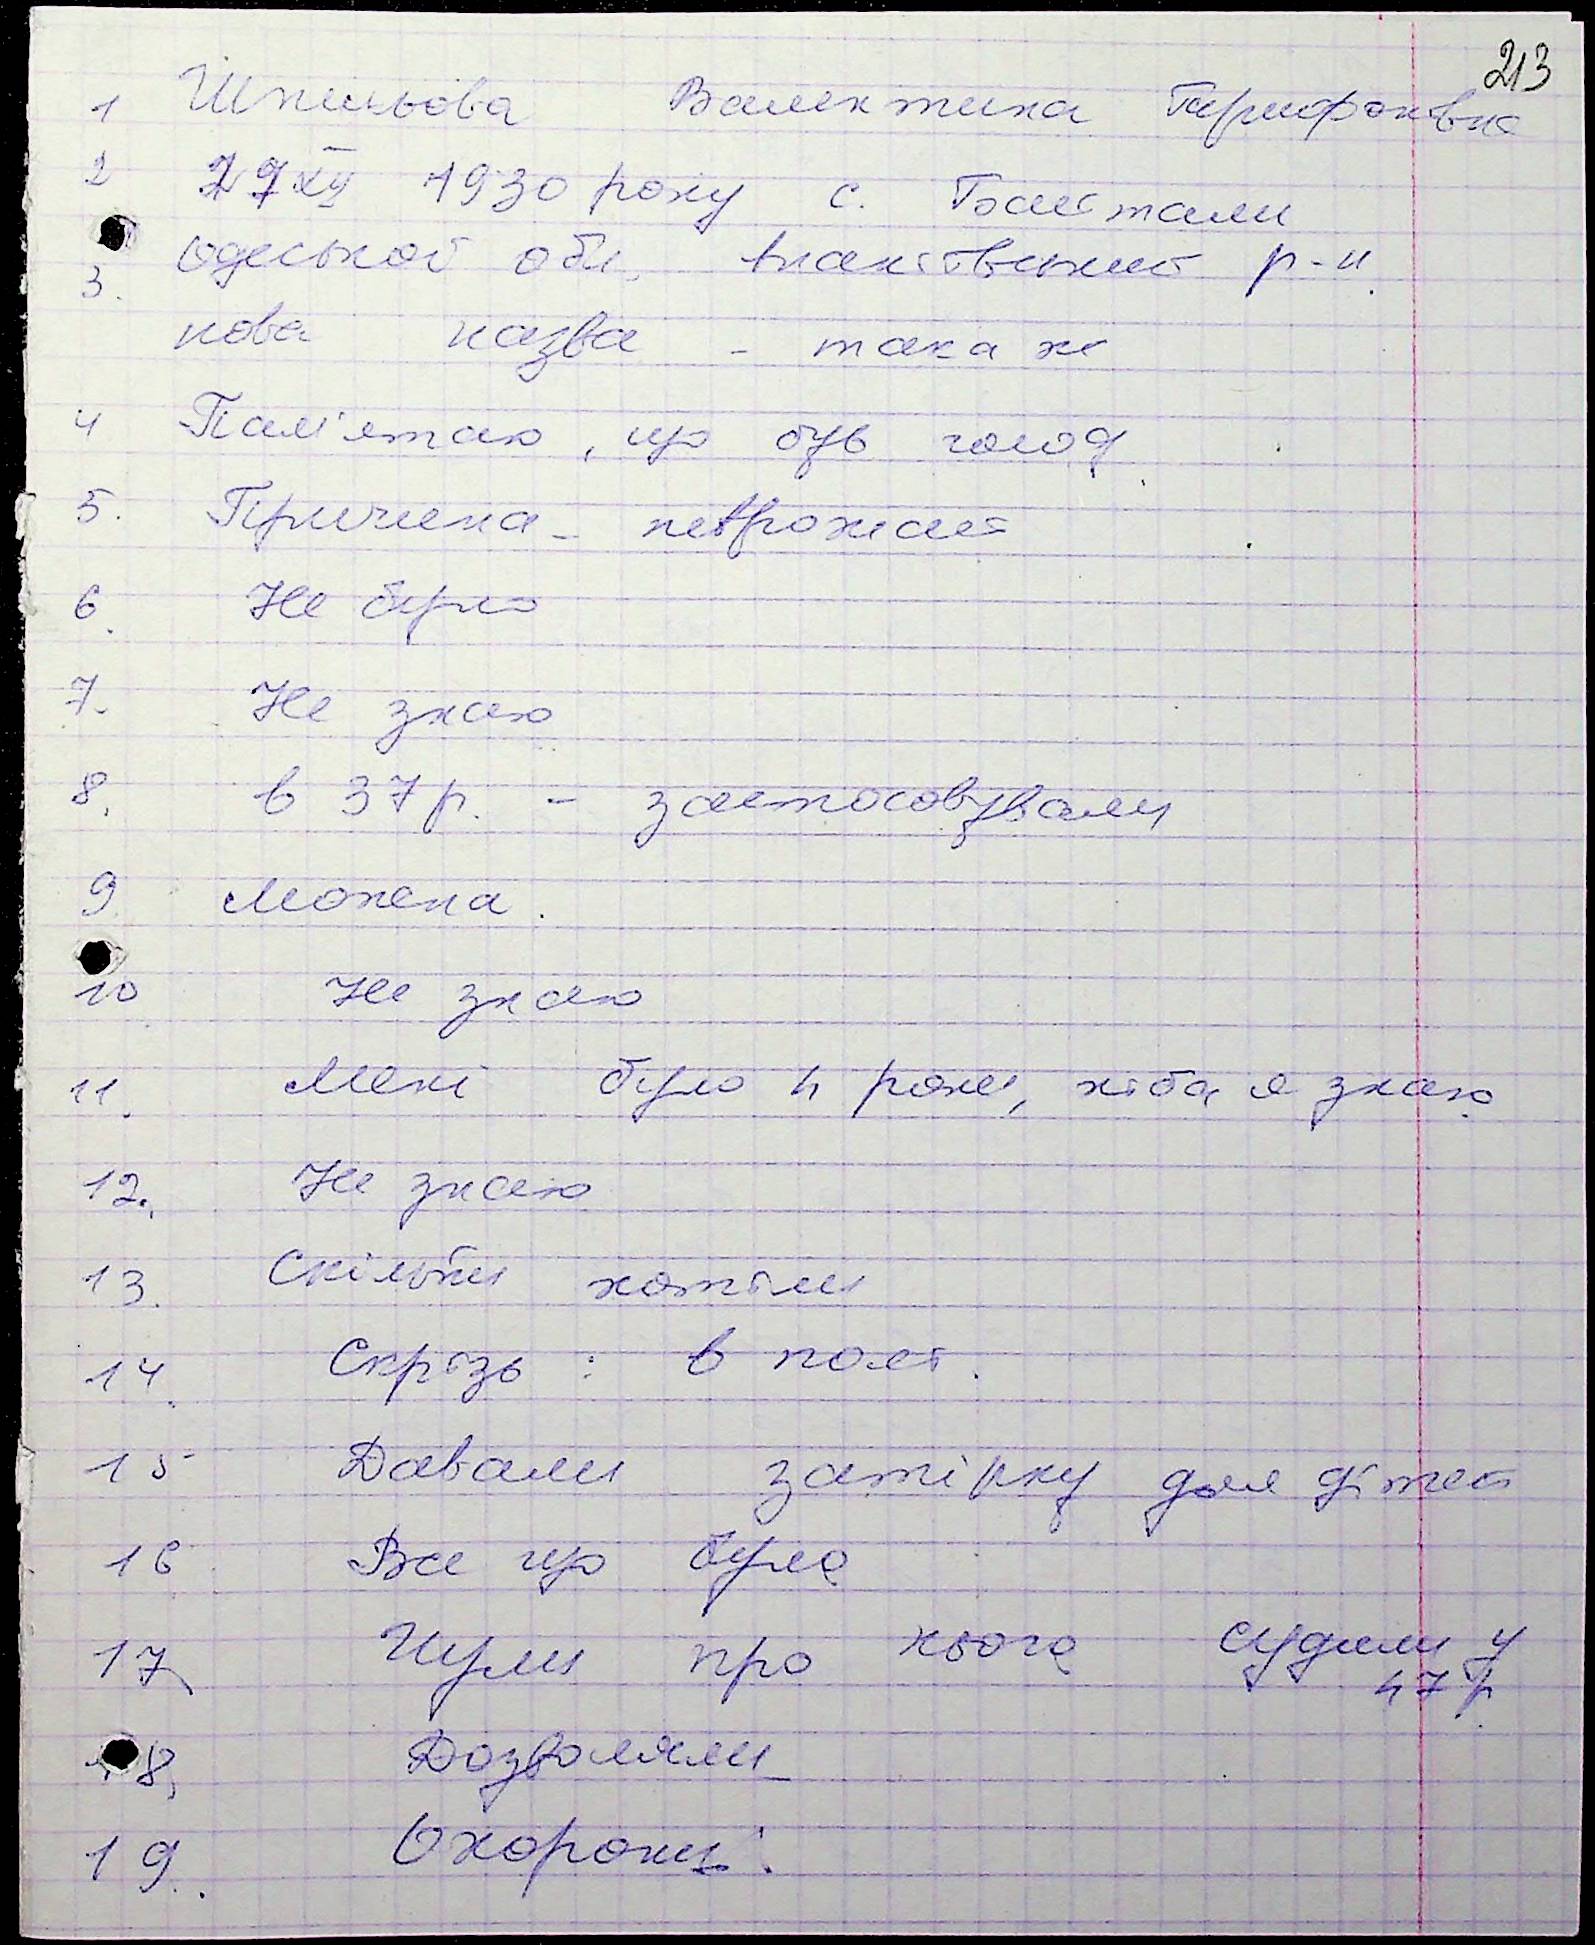 213
1 Шпильова Валентина Трифонівна
2 27 XII 1930 року с. Байтали
3. Одеської обл. Ананьївський р-н.
нова назва - така ж
4 Пам'ятаю, що був голод.
5. Причина - неврожай
6. Не було
7. Не знаю
8. в 37 р. - застосовували
9. Можна.
10 Не знаю
11. Мені було 4 роки, хіба я знаю.
12. Не знаю
13. Скільки хотіли
14. Скрізь: в полі.
15 Давали затірку для дітей
16 Все що було
17 Чули про нього судили у
47 р.
18. Дозволяли
19. Охорони.